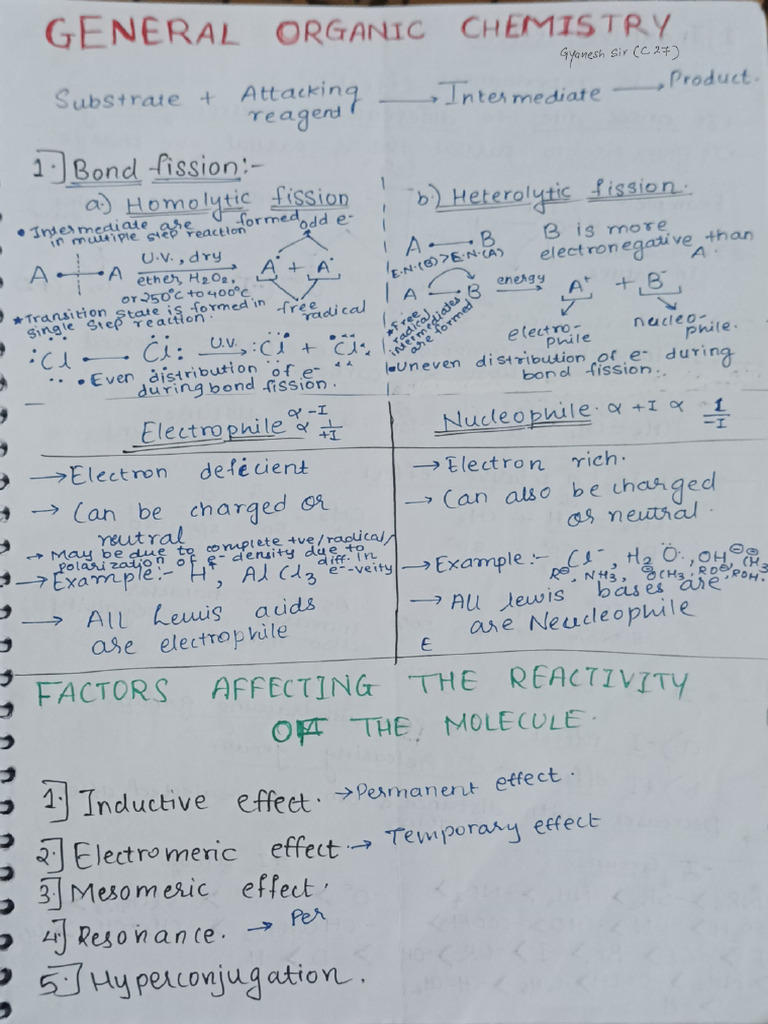 GENERAL ORGANIC CHEMISTRY
Gyanesh Sir (C27)
Substrate + Attacking reagent → Intermediate → Product.
1.] Bond fission:-
a.) Homolytic fission
• Intermediate are formed
in multiple step reaction
odd e-
A — A U.V., dry → A• + A•
ether, H2O2,
or 250°C to 400°C
free radical
* Transition state is formed in
single step reaction.
:Cl — Cl: U.V. → :Cl• + •Cl:
• Even distribution of e-
during bond fission.
b.) Heterolytic fission.
A — B B is more
electronegative than
A.
E.N.(B) > E.N.(A)
A — B energy → A+ + B-
electro-
phile
nucleo-
phile.
* Free
radical
intermediates
are formed
• Uneven distribution of e- during
bond fission.
Electrophile ∝ -I ∝ 1/+I
→ Electron deficient
→ Can be charged or
neutral
→ May be due to complete +ve/radical/
polarization of e- density due to
diff. in
e--veity
→ Example:- H+, AlCl3
→ All Lewis acids
are electrophile
Nucleophile. ∝ +I ∝ 1/-I
→ Electron rich.
→ Can also be charged
or neutral.
→ Example:- Cl-, H2O, OH⊖
R⊖, NH3, OCH3, RO⊖, ROH.
→ All lewis bases are
are Neucleophile
E
FACTORS AFFECTING THE REACTIVITY
OF THE MOLECULE.
1.] Inductive effect. → Permanent effect.
2.] Electromeric effect → Temporary effect
3.] Mesomeric effect.
4.] Resonance. → Per
5.] Hyperconjugation.